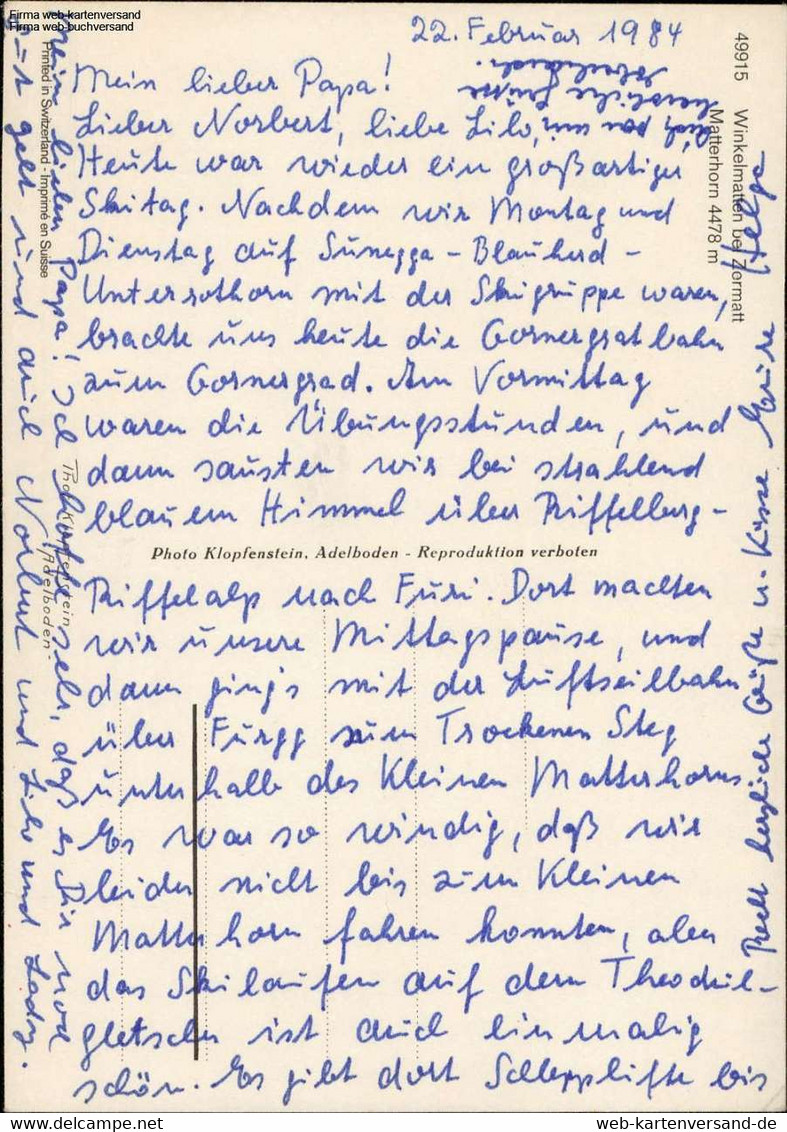 Firma web-kartenversand
Firma web-buchversand
22. Februar 1984
Mein lieber Papa!
Lieber Norbert, liebe Lilo,
Heute war wieder ein großartiger
Skitag. Nachdem wir Montag und
Dienstag auf Sunegga - Blauherd -
Unterrothorn mit der Skigruppe waren,
brachte uns heute die Gornergratbahn
zum Gornergrad. Am Vormittag
waren die Übungsstunden, und
dann sausten wir bei strahlend
blauem Himmel über Riffelberg -
Photo Klopfenstein, Adelboden - Reproduktion verboten
Riffelalp nach Furi. Dort machten
wir unsere Mittagspause, und
dann ging's mit der Luftseilbahn
über Furgg zum Trockenen Steg
unterhalb des Kleinen Matterhorns
Es war so windig, daß wir
leider nicht bis zum Kleinen
Matterhorn fahren konnten, aber
das Skilaufen auf dem Theodul-
gletscher ist auch einmalig
schön. Es gibt dort Schlepplifte bis
49915 Winkelmatten bei Zermatt
Matterhorn 4478 m
Printed in Switzerland - Imprimé en Suisse
Photo Klopfenstein
Adelboden
Mein lieber Papa! Ich hoffe sehr, daß es Dir noch
gut geht und auch Norbert und Lilo und Lady.
Recht herzliche Grüße u. Küsse Eure Helga
auch von mir
herzliche Grüsse
web-kartenversand-de